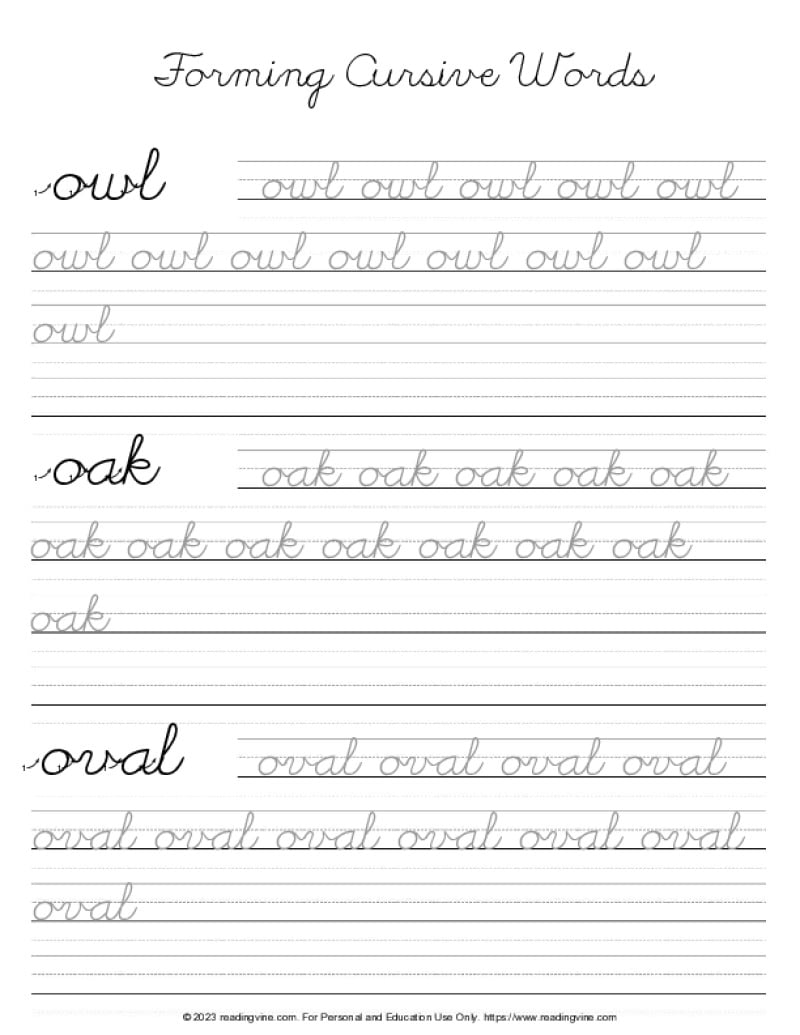 Forming Cursive Words
owl owl owl owl owl owl
owl owl owl owl owl owl owl
owl
oak oak oak oak oak oak
oak oak oak oak oak oak oak
oak
oval oval oval oval oval
oval oval oval oval oval oval
oval
© 2023 readingvine.com. For Personal and Education Use Only. https://www.readingvine.com